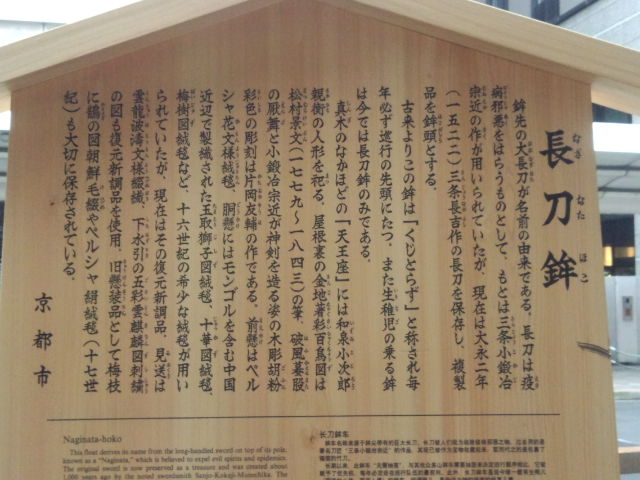 長刀鉾
なぎ なた ほこ
鉾先の大長刀が名前の由来である。長刀は疫
病邪悪をはらうものとして、もとは三条小鍛冶
宗近の作が用いられていたが、現在は大永二年
(一五二二)三条長吉作の長刀を保存し、複製
品を鉾頭とする。
古来よりこの鉾は「くじとらず」と称され毎
年必ず巡行の先頭にたつ、また生稚児の乗る鉾
は今では長刀鉾のみである。
真木のなかほどの「天王座」には和泉小次郎
親衡の人形を祀る。屋根裏の金地著彩百鳥図は
松村景文(一七七九〜一八四三)の筆、破風蟇股
の厭舞と小鍛冶宗近が神剣を造る姿の木彫胡粉
彩色の彫刻は片岡友輔の作である。前懸はペル
シャ花文様絨毯、胴懸にはモンゴルを含む中国
近辺で製織された玉取獅子図絨毯、十華図絨毯、
梅樹図絨毯など、十六世紀の希少な絨毯が用い
られていたが、現在はその復元新調品、見送は
雲龍波濤文様綴織、下水引の五彩雲麒麟図刺繍
の図も復元新調品を使用。旧懸装品として梅枝
に鶴の図朝鮮毛綴やペルシャ絹絨毯(十七世
紀)も大切に保存されている。
京都市
Naginata-hoko
This float derives its name from the long-handled sword on top of its pole,
known as a "Naginata," which is believed to expel evil spirits and epidemics.
The original sword is now preserved as a treasure and was created about
1,000 years ago by the noted swordsmith Sanjo-Kokaji-Munechika. The
长刀鉾车